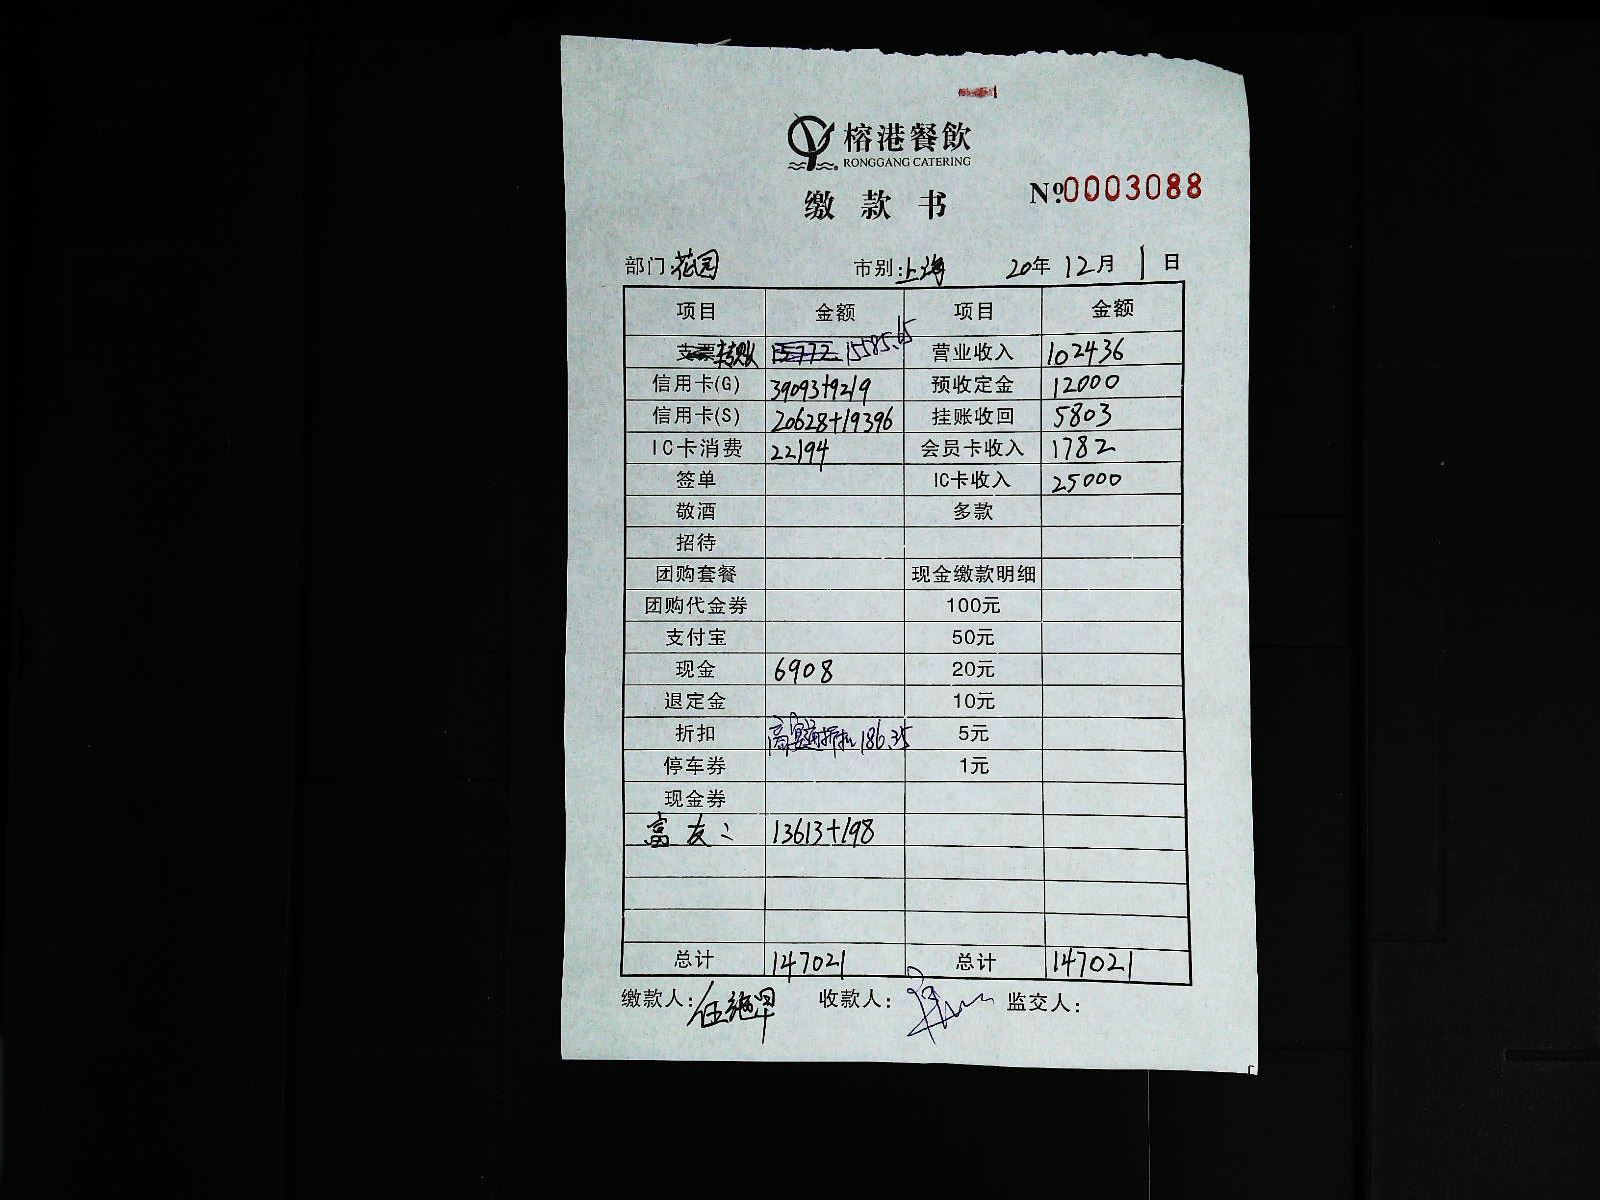 榕港餐飲
RONGGANG CATERING
缴款书
№0003088
部门:花园 市别:上海 20年12月1日
项目 金额 项目 金额
转账 15585.65 营业收入 102436
信用卡(G) 39093+9219 预收定金 12000
信用卡(S) 20628+19396 挂账收回 5803
IC卡消费 22194 会员卡收入 1782
签单 IC卡收入 25000
敬酒 多款
招待
团购套餐 现金缴款明细
团购代金券 100元
支付宝 50元
现金 6908 20元
退定金 10元
折扣 商宴通折扣186.35 5元
停车券 1元
现金券
富友: 13613+198
总计 147021 总计 147021
缴款人: 收款人: 监交人: